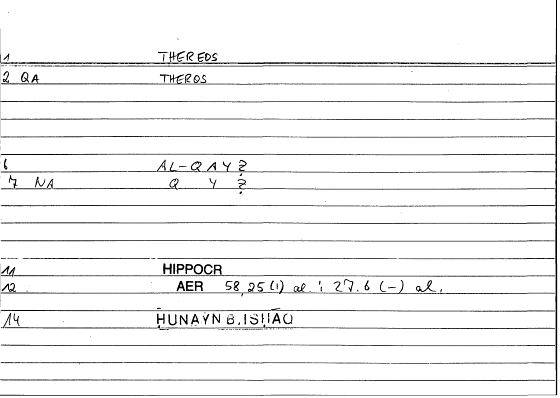 1 THEREOS
2 QA THEROS
6 AL-QAYẒ
7 NA Q Y Ẓ
11 HIPPOCR
12 AER 58,25 (1) al.; 27.6 (-) al.
14 ḤUNAYN B. ISḤĀQ